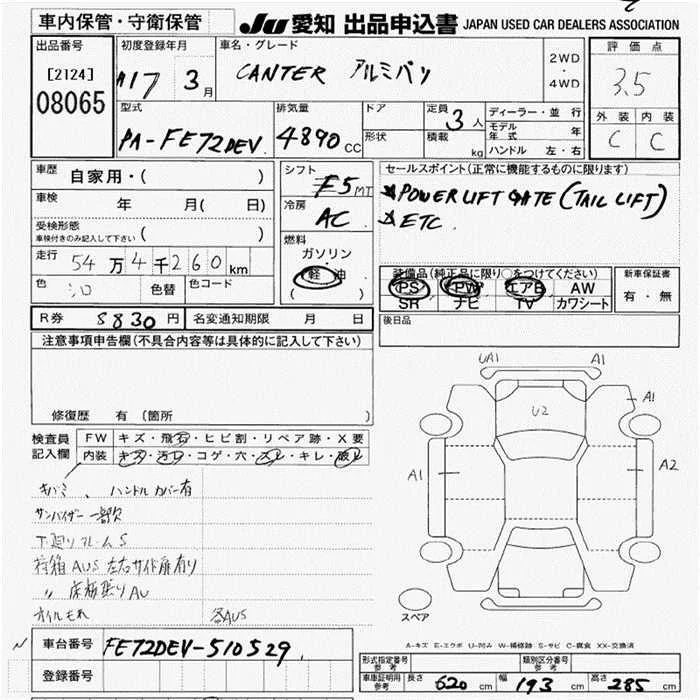 車内保管・守衛保管 JU 愛知 出品申込書 JAPAN USED CAR DEALERS ASSOCIATION
出品番号 初度登録年月 車名・グレード 2WD ・ 4WD 評価点
[2124] 08065 H17 3月 CANTER アルミバン 3.5
型式 排気量 ドア 定員 3人 ディーラー・並行 外装 内装
PA-FE72DEV 4890CC 形状 積載 kg モデル年式 年 C C
ハンドル 左・右
車歴 自家用・( ) シフト F5MT セールスポイント(正常に機能するものに限ります)
車検 年 月( 日) 冷房 AC POWER LIFT GATE (TAIL LIFT)
受検形態 車検付きのみ記入して下さい ( ) ETC
走行 54万4千260km 燃料 ガソリン ・ 軽油 ( )
色 シロ 色替 色コード
装備品(純正品に限り○をつけてください) 新車保証書
PS PW エアB AW 有・無
SR ナビ TV カワシート
R券 8830円 名変通知期限 月 日 後日品
注意事項申告欄(不具合内容等は具体的に記入して下さい)
修復歴 有 (箇所 )
検査員記入欄 FW キズ・飛石・ヒビ割・リペア跡・X要
内装 キズ・汚レ・コゲ・穴・スレ・キレ・破レ
キバミ、ハンドルカバー有
サンバイザー 一部欠
下廻りフレームS
荷箱AUS 左右サイド扉有り
〃 床板張りAU
オイルモレ 各AUS
UA1 A1
A1
U2
A1 A2
スペア
A-キズ E-エクボ U-凹み W-補修跡 S-サビ C-腐食 XX-交換済
車台番号 FE72DEV-510529
登録番号
形式指定番号 参考 類別区分番号 参考
車庫証明用 参考 長さ 620cm 幅 193cm 高さ 285cm